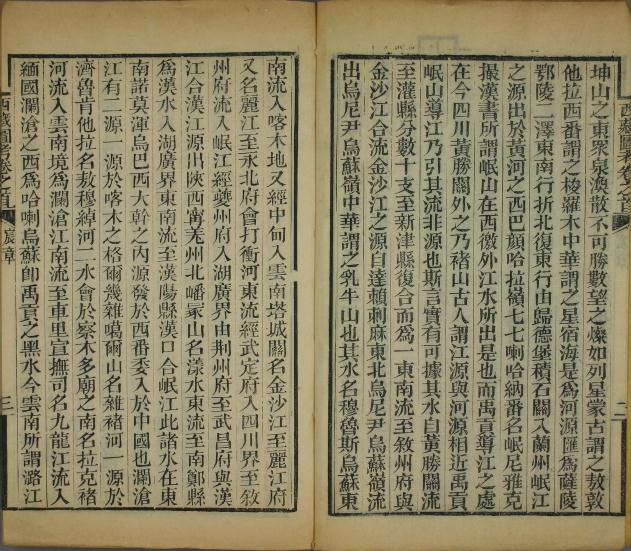 坤山之東眾泉渙散不可勝數望之燦如列星蒙古謂之敖敦
他拉西番謂之梭羅木中華謂之星宿海是為河源匯為薩陵
鄂陵二澤東南行折北復東行由歸德堡積石關入蘭州岷江
之源出於黃河之西巴顏哈拉嶺七七喇哈納番名岷尼雅克
撮漢書所謂岷山在西徼外江水所出是也而禹貢導江之處
在今四川黃勝關外之乃褚山古人謂江源與河源相近禹貢
岷山導江乃引其流非源也斯言實有可據其水自黃勝關流
至灌縣分數十支至新津縣復合而為一東南流至敘州府與
金沙江合流金沙江之源自達賴喇麻東北烏尼尹烏蘇嶺流
出烏尼尹烏蘇嶺中華謂之乳牛山也其水名穆魯斯烏蘇東
二
南流入喀木地又經中甸入雲南塔城關名金沙江至麗江府
又名麗江至永北府會打衝河東流經武定府入四川界至敘
州府流入岷江經夔州府入湖廣界由荊州府至武昌府與漢
江合漢江源出陝西寗羌州北嶓冢山名漾水東流至南鄭縣
為漢水入湖廣界東南流至漢陽縣漢口合岷江此諸水在東
南諾莫渾烏巴西大幹之內源發於西番委入於中國也瀾滄
江有二源一源於喀木之格爾幾雜噶爾山名雜褚河一源於
濟魯肯他拉名敖穆綽河二水會於察木多廟之南名拉克褚
河流入雲南境為瀾滄江南流至車里宣撫司名九龍江流入
緬國瀾滄之西為哈喇烏蘇卽禹貢之黑水今雲南所謂潞江
西藏圖考卷之首
宸章
三